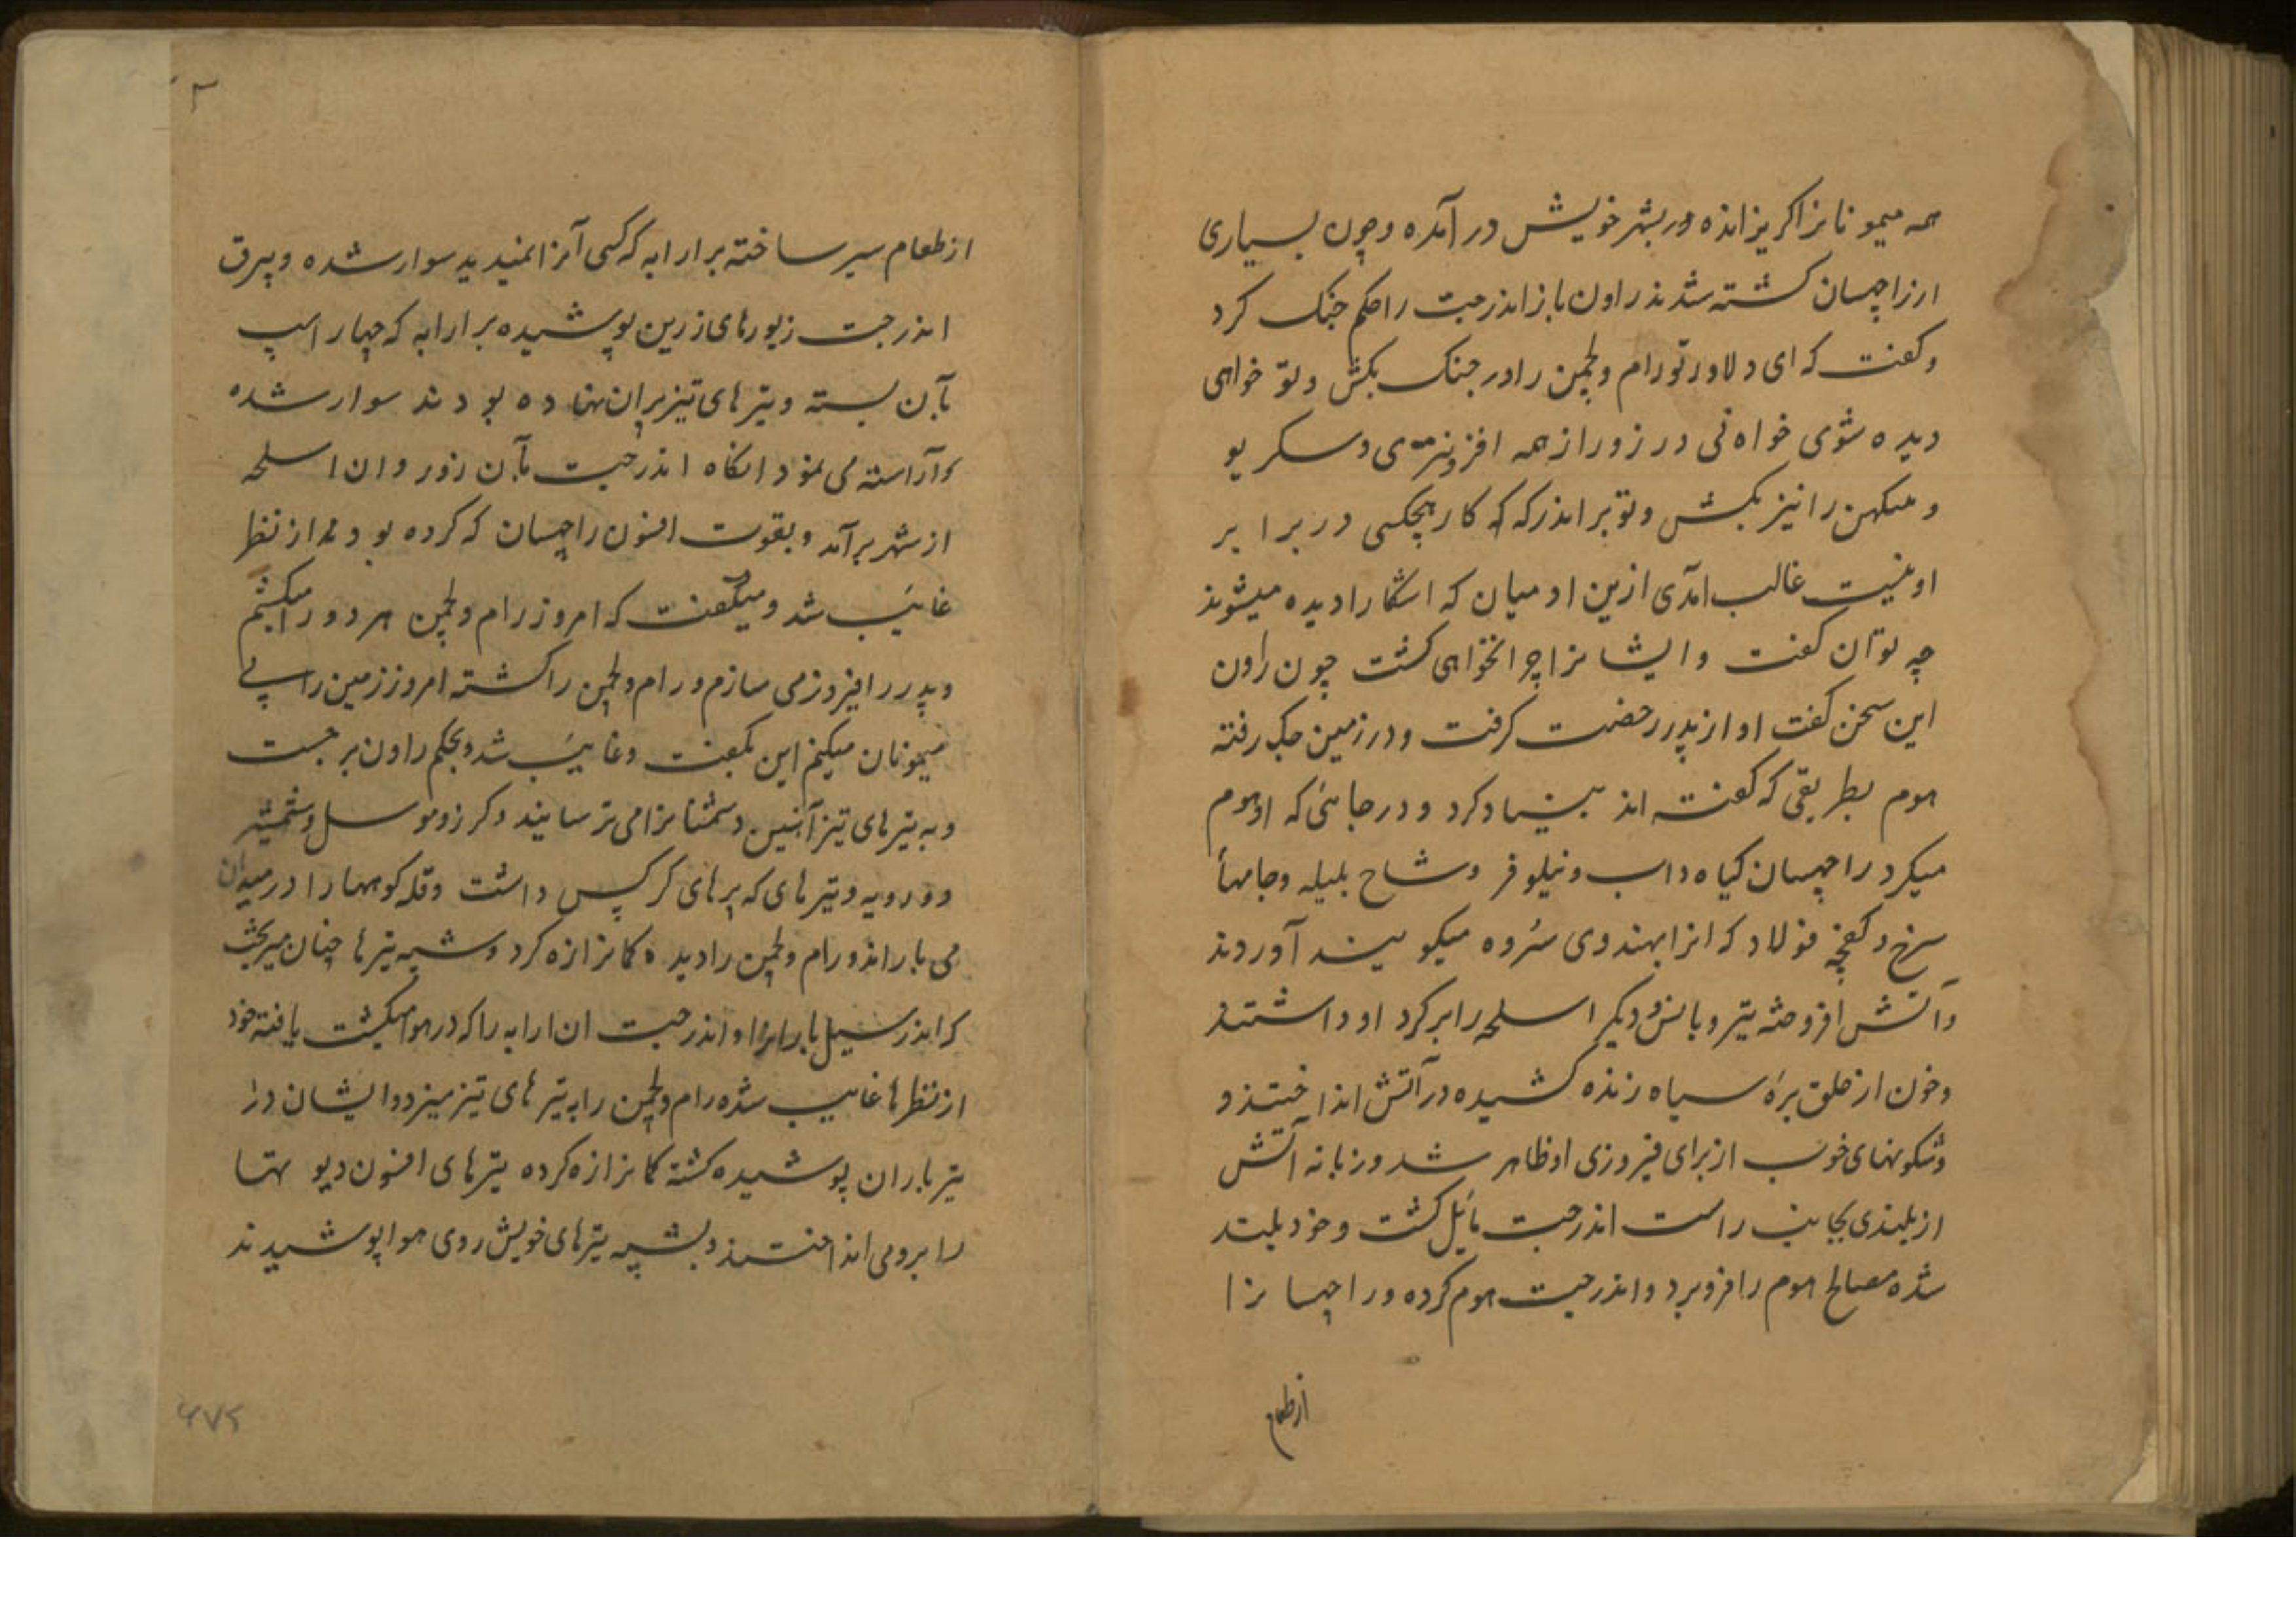 همه میمونانرا کریزانده در بشهر خویش در آمده و چون بسیاری
ارزاچهسان کشته شدند راون باز اندرجیت را حکم جنک کرد
و کفت که ای دلاور تو رام و لچمن را در جنک بکش و تو خواهی
دیده شوی خواه نی در زور از همه افزونتری و سکریو
و را نیز بکش و تو بر اندر که که کار هیچکسی در برابر
او نیست غالب امدی ازین ادمیان که اشکارا دیده میشوند
چه توان کفت و ایشانرا چرا نخواهی کشت چون راون
این سخن کفت او از پدر رخصت کرفت و در زمین جک رفته
هوم بطریقی که کفته اند بنیاد کرد و در جائی که او هوم
میکرد راچهسان کیاه داب و نیلوفر و شاخ بلیله و جامهأ
سرخ و کفچهٔ فولاد که انرا بهندوی سُروه میکویند آوردند
و آتش افروخته تیر و بانس و دیکر اسلحه را بر کرد او داشتند
و خون از حلق برهٔ سیاه زنده کشیده در آتش انداختند و
و شکونهای خوب از برای فیروزی او ظاهر شد و زبانه آتش
از بلندی بجانب راست اندرجیت مائل کشت و خود بلند
شده مصالح هوم را فرو برد و اندرجیت هوم کرده و راچهسانرا
از طعام
از طعام سیر ساخته بر ارابه که کسی آنرا نمیدید سوار شده و بیرق
اندرجیت زیورهای زرین پوشیده بر ارابه که چهار اسپ
بآن بسته و تیرهای تیز بران نهاده بودند سوار شده
و آراسته می نمود انکاه اندرجیت بآن زور و ان اسلحه
از شهر برآمد و بقوت افسون راچهسان که کرده بودند از نظر
غائب شد و میکفت که امروز رام و لچمن هر دو را میکشم
و پدر را فیروز می سازم و رام و لچمن را کشته امروز زمین را بی
میمونان میکنم این بکفت و غائب شد و بحکم راون برجست
و به تیرهای تیز آهنین دشمنانرا می ترسانید و کرز و موسل و شمشیر
دو رویه و تیرهای که پرهای کرکس داشت و قله کوهها را در میدان
می باراند و رام و لچمن را دیده کمانرا زه کرد و شیبه تیرها چنان میریخت
که اندر سیل باران را و اندرجیت ان ارابه را که در هوا میکشت یافته خود
از نظرها غایب شده رام و لچمن را به تیرهای تیز میزد و ایشان در
تیر باران پوشیده کشته کمانرا زه کرده تیرهای افسون دیوتها
را برو می انداختند و بشیبه تیرهای خویش روی هوا پوشیدند
۶۷۲